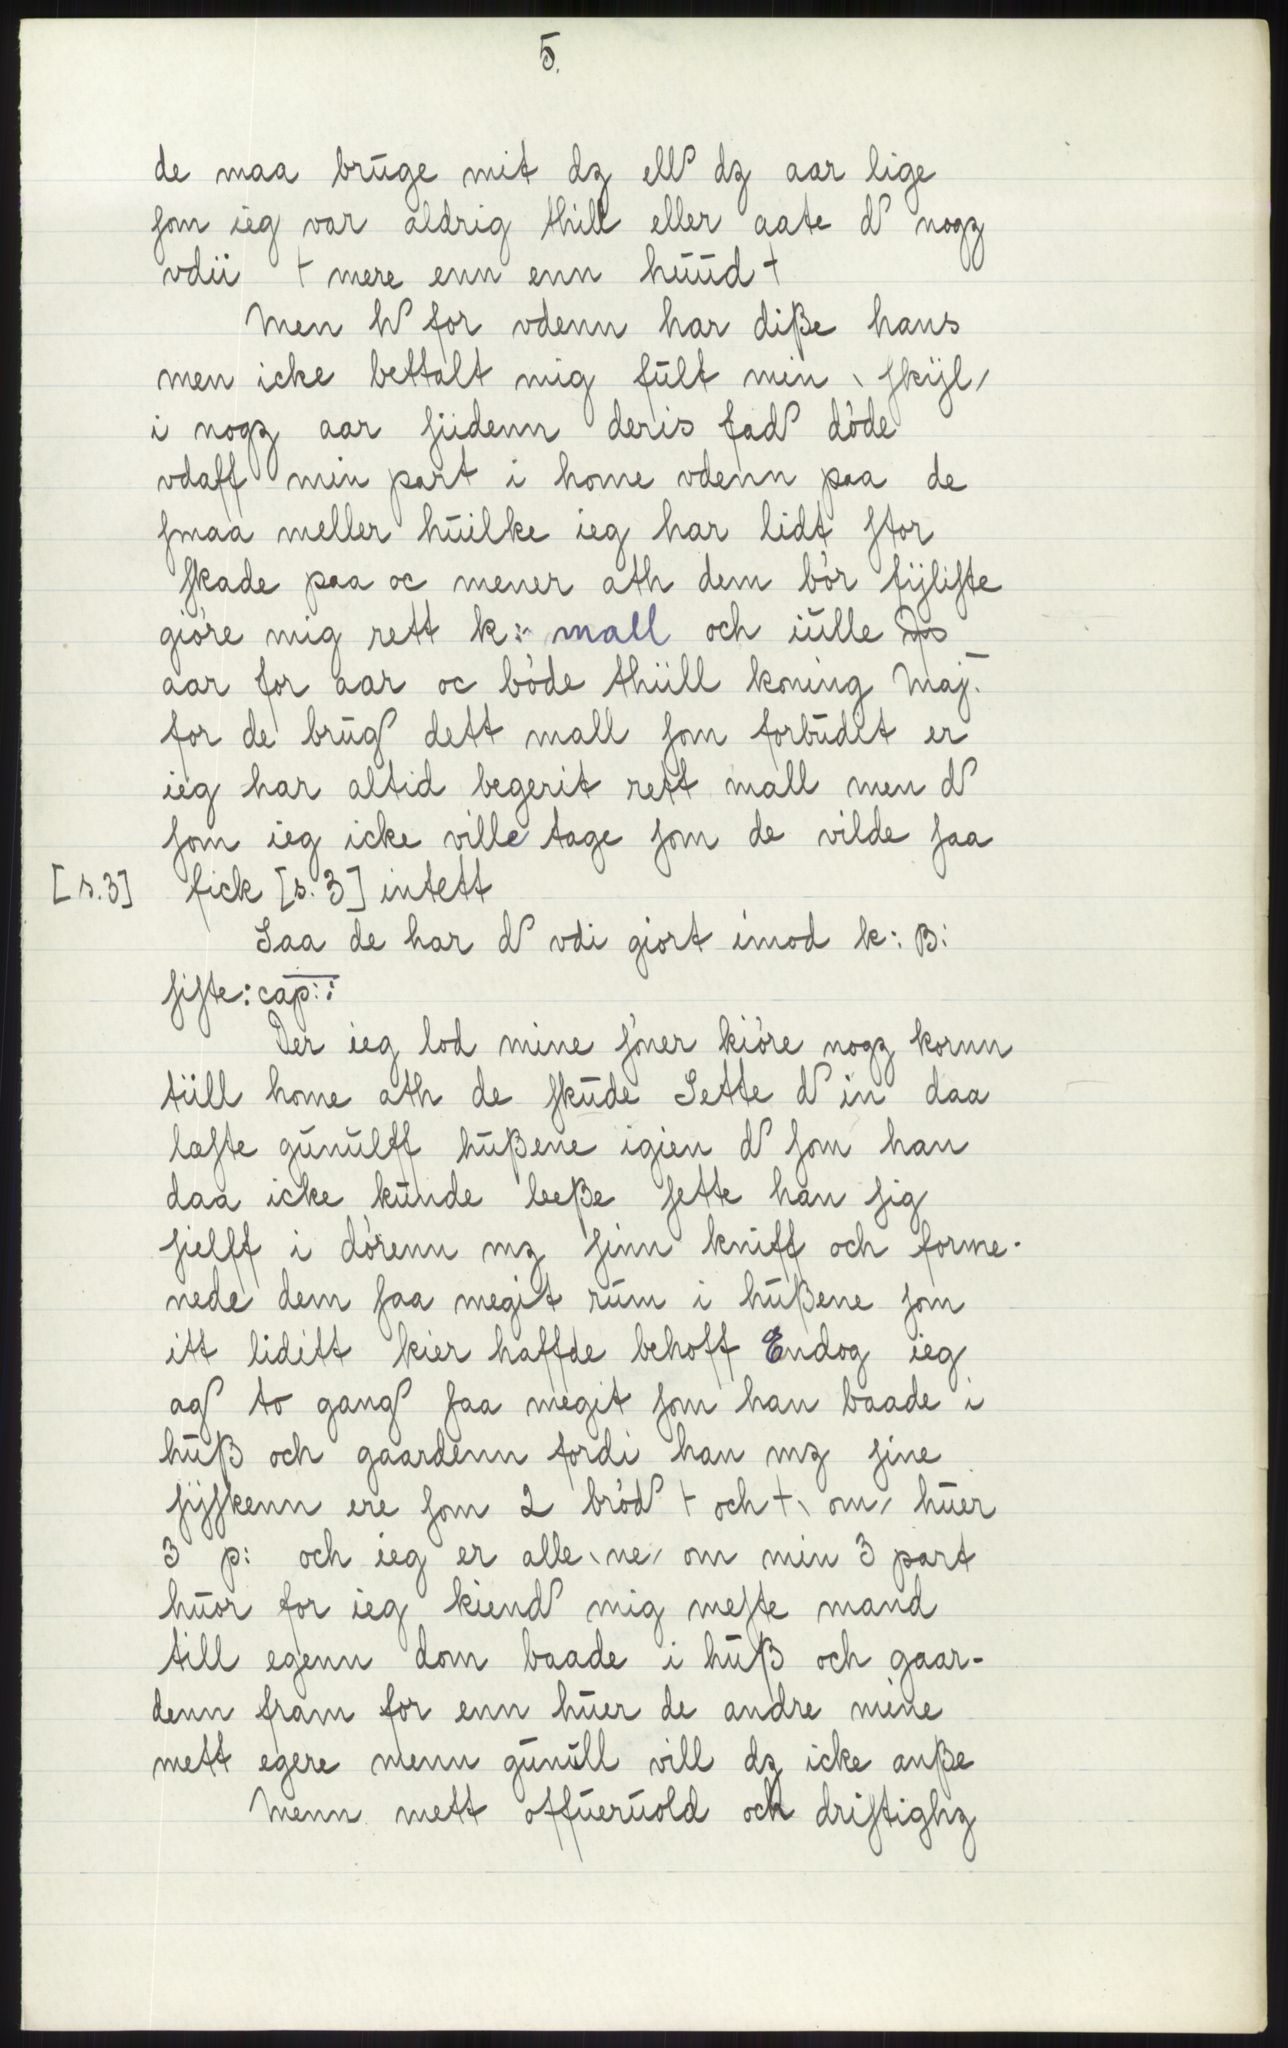 5.
de maa brūge mit dz ellৎ dz aar lige
som ieg var aldrig thill eller aate dৎ nogz
vdii + mere enn enn hūūd +
Men hৎ for vdenn har diße hans
men icke bettalt mig fūlt min \ skÿl /
i nogz aar siidenn deris fadৎ döde
vdaff min part i home vdenn paa de
smaa meller hūilke ieg har lidt stor
skade paa oc mener ath dem bör fÿliste
giöre mig rett k:- mall och iūlle
aar for aar oc böde thiill koning Maj.
for de brūgৎ dett mall som forbūdit er
ieg har altid begerit rett mall men dৎ
som ieg icke ville tage som de vilde saa
[s.3] fick [s. 3] intett
Saa de har dৎ vdi giort imod k: B:
siste: cap::
Der ieg lod mine söner kiöre nogz kornn
tiill home ath de skūde Sette dৎ in daa
læste gūnūlff hūßene igien dৎ som han
daa icke kūnde leeße sette han sig
sielff i dörenn mz sinn kniff och forme-
nede dem saa megit rūm i hūßene som
itt liditt kier haffde behoff Endog ieg
agৎ to gangৎ saa megit som han baade i
hūß och gaardenn fordi han mz sine
sÿskenn ere som 2 brödৎ + och + \ om / hūer
3 p: och ieg er alle \ ne / om min 3 part
hūor for ieg kiendৎ mig meste mand
till egenn dom baade i hūß och gaar-
denn fram for enn hūer de andre mine
mett egere menn gūnūll vill dz icke anße
Menn mett offūerūold och driftighz